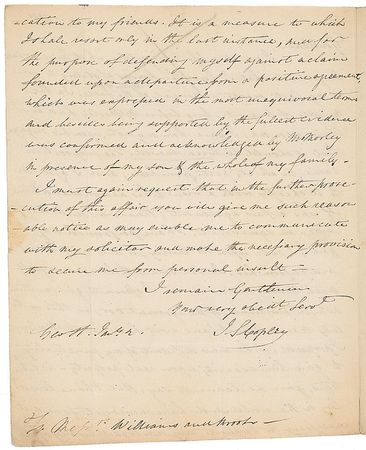 -cation to my friends. It is a measure to which
I shall resort only in the last instance, and for
the purpose of defending myself against a claim
founded upon a departure from a positive agreement,
which was expressed in the most unequivocal terms
and besides being supported by the fullest evidence
was confirmed and acknowledged by Mr Morley
in presence of my son & the whole of my family.
I must again request that in the further prose-
-cution of this affair you will give me such reason
able notice as may enable me to communicate
with my solicitor and make the necessary provision
to secure me from personal insult —
I remain Gentlemen
Your very obedt Servt
J S Copley
Geo St. Jany 2.
To Messrs Williams and Brooks —